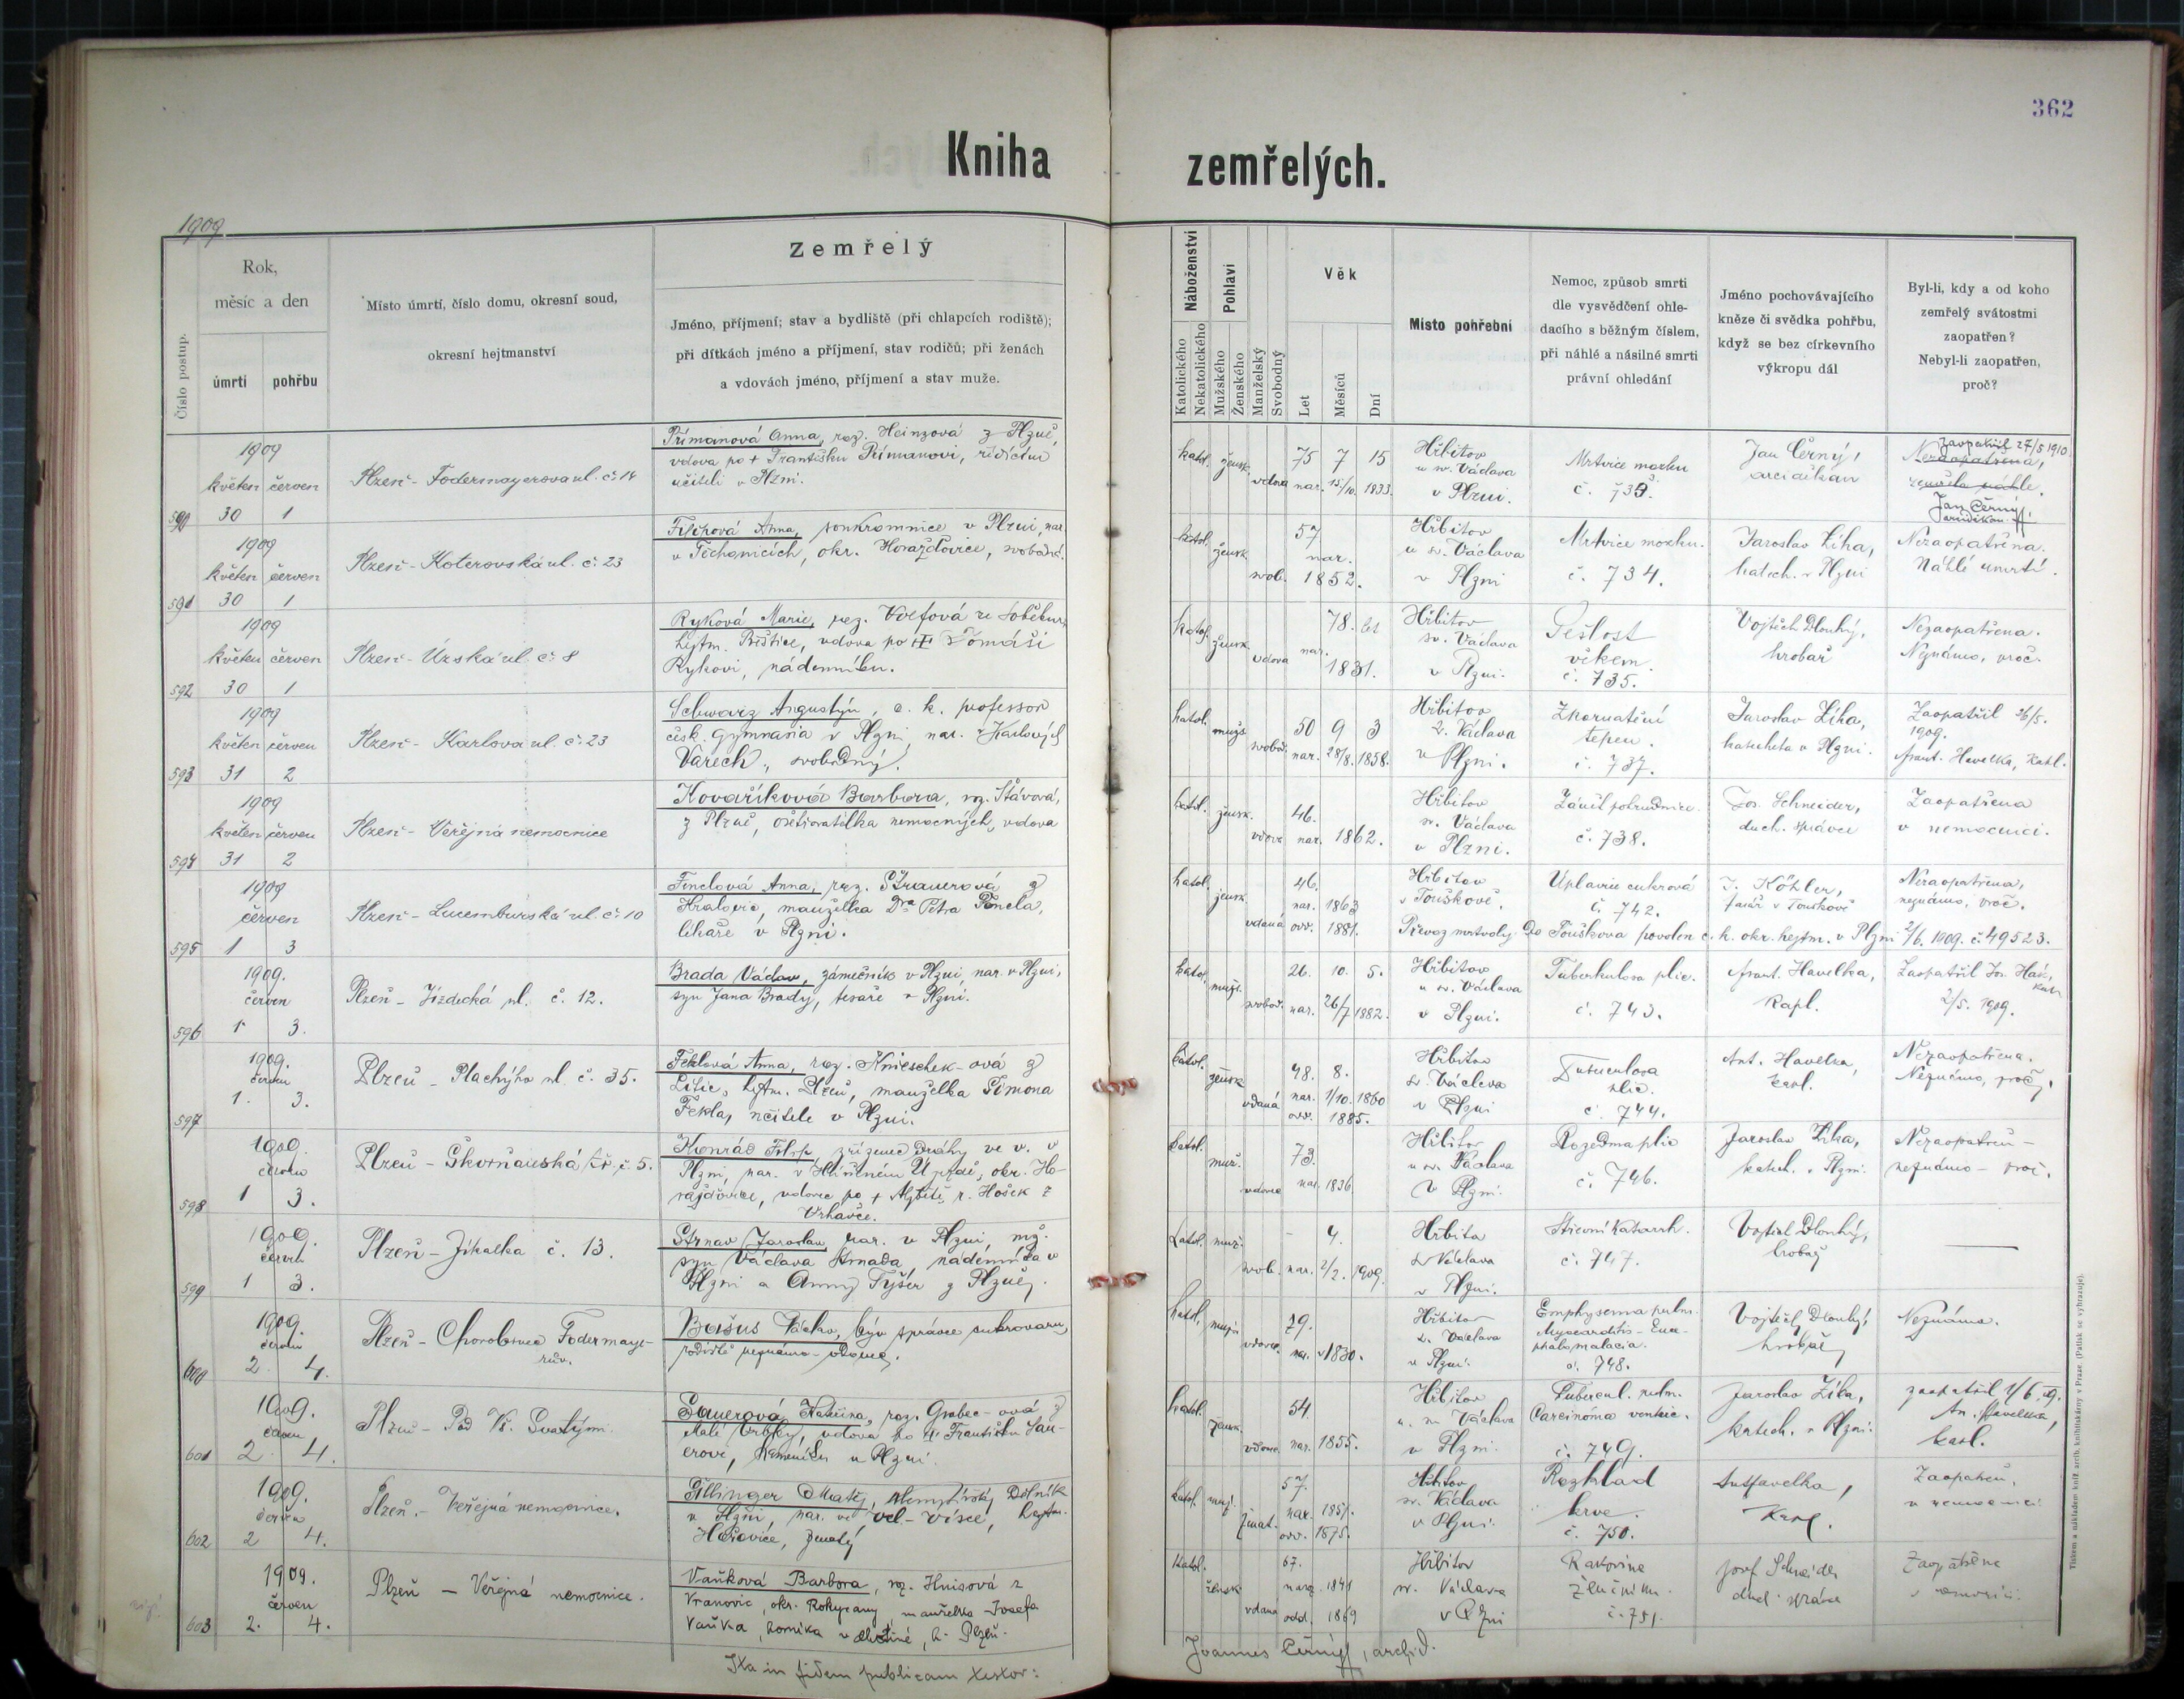 362
Kniha zemřelých.
1909
Číslo postup.
Rok,
měsíc a den
úmrtí
pohřbu
Místo úmrtí, číslo domu, okresní soud,
okresní hejtmanství
Zemřelý
Jméno, příjmení; stav a bydliště (při chlapcích rodiště);
při dítkách jméno a příjmení, stav rodičů; při ženách
a vdovách jméno, příjmení a stav muže.
Náboženství
Katolického
Nekatolického
Pohlaví
Mužského
Ženského
Manželský
Svobodný
Věk
Let
Měsíců
Dní
Místo pohřební
Nemoc, způsob smrti
dle vysvědčení ohle-
dacího s běžným číslem,
při náhlé a násilné smrti
právní ohledání
Jméno pochovávajícího
kněze či svědka pohřbu,
když se bez církevního
výkropu dál
Byl-li, kdy a od koho
zemřelý svátostmi
zaopatřen?
Nebyl-li zaopatřen,
proč?
590
1909
květen červen
30 1
Plzeň - Fodermayerova ul. č. 14
Přimanová Anna, roz. Heinzová z Plzně,
vdova po + Františku Přimanovi, řídícím
učiteli v Plzni.
katol. žensk. vdova
75 7 15
nar. 15/10. 1833.
Hřbitov
u sv. Václava
v Plzni.
Mrtvice mozku
č. 733.
Jan Černý,
arciděkan
Zaopatřil 27/5 1910
Nezaopatřena,
zemřela náhle.
Jan Černý,
arciděkan
591
1909
květen červen
30 1
Plzeň - Koterovská ul. č. 23
Filipová Anna, soukromnice v Plzni, nar.
v Těchonicích, okr. Horažďovice, svobodná.
katol. žensk. svob.
57
nar.
1852.
Hřbitov
u sv. Václava
v Plzni
Mrtvice mozku.
č. 734.
Jaroslav Žiha,
katech. v Plzni
Nezaopatřena.
Náhlé úmrtí.
592
1909
květen červen
30 1
Plzeň - Úzská ul. č. 8
Ryková Marie, roz. Volfová ze
hejtm. vdova po + Tomáši
Rykovi, nádenníku.
katol. žensk. vdova
78. let
nar.
1831.
Hřbitov
sv. Václava
v Plzni.
Sešlost
věkem.
č. 735.
Vojtěch Dlouhý,
hrobař
Nezaopatřena.
Neznámo, proč.
593
1909
květen červen
31 2
Plzeň - Karlova ul. č. 23
Schwarz Augustýn, c. k. professor
česk. gymnasia v Plzni, nar. v Karlových
Varech, svobodný.
katol. mužs. svobod.
50 9 3
nar. 28/8. 1858.
Hřbitov
s. Václava
v Plzni.
Zkornatění
tepen.
č. 737.
Jaroslav Žiha,
katecheta v Plzni.
Zaopatřil 26/5.
1909.
Frant. Havelka, kapl.
594
1909
květen červen
31 2
Plzeň - Veřejná nemocnice
Kovaříková Barbora, roz. Šťávová,
z Plzně, ošetřovatelka nemocných, vdova
katol. žensk. vdova
46.
nar. 1862.
Hřbitov
sv. Václava
v Plzni.
Zánět pohrudnice.
č. 738.
Jos. Schneider,
duch. správce
Zaopatřena
v nemocnici.
595
1909
červen
1 3
Plzeň - Lucemburská ul. č. 10
Finclová Anna, roz.
Kralovic, manželka Dra Petra
lékaře v Plzni.
katol. žensk. vdaná
46.
nar. 1863
odd. 1881.
Hřbitov
v Touškově.
Úplavice cukrová
č. 742.
J. Köhler,
farář v Touškově
Nezaopatřena,
neznámo, proč.
Převoz mrtvoly do Touškova povolen c. k. okr. hejtm. v Plzni 2/6. 1909. č. 49523.
596
1909.
červen
1 3.
Plzeň - Jízdecká ul. č. 12.
Brada Václav, zámečník v Plzni, nar. v Plzni,
syn Jana Brady, tesaře v Plzni.
katol. mužs. svobod.
26. 10. 5.
nar. 26/7 1882.
Hřbitov
u sv. Václava
v Plzni.
Tuberkulosa plic.
č. 743.
Frant. Havelka,
kapl.
Zaopatřil Jos.
2/5. 1909.
597
1909.
červen
1. 3.
Plzeň - Plachýho ul. č. 35.
Feklová Anna, roz. Knieschek-ová z
Litic, hejtm. Plzeň, manželka Šimona
Fekla, učitele v Plzni.
katol. žensk. vdaná
48. 8.
nar. 1/10. 1860
odd. 1885.
Hřbitov
sv. Václava
v Plzni
Tuberculosa
plic.
č. 744.
Ant. Havelka,
kapl.
Nezaopatřena.
Neznámo, proč.
598
1909.
červen
1 3.
Plzeň - Škorňanská tř. č. 5.
Konrád Filip, zřízenec dráhy ve v. v
Plzni, nar. v okr. Ho-
ražďovice, vdovec po + Alžbětě, r. Hošek z
Vrhavče.
katol. muž. vdovec
73.
nar. 1836
Hřbitov
u sv. Václava
v Plzni.
Rozedma plic
č. 746.
Jaroslav Žiha,
katech. v Plzni.
Nezaopatřen -
neznámo - proč.
599
1909.
červen
1 3.
Plzeň - Jíkalka č. 13.
Strnad Jaroslav, nar. v Plzni, mž.
syn Václava Strnada, nádenníka v
Plzni a Anny Tyšer z Plzně.
katol. muž. svob.
- 4.
nar. 2/2. 1909.
Hřbitov
sv Václava
v Plzni.
Střevní katarrh.
č. 747.
Vojtěch Dlouhý,
hrobař
600
1909.
červen
2. 4.
Plzeň - Chorobinec Fodermaye-
rův.
Bašus Václav, býv. správce cukrovaru,
rodiště neznámo - vdovec.
katol. mužs. vdovec
79.
nar. 1830.
Hřbitov
s. Václava
v Plzni.
Emphysema pulm.
Myocarditis - Ence-
phalomalacia.
č. 748.
Vojtěch Dlouhý,
hrobař
Neznámo.
601
1909.
červen
2 4.
Plzeň - Pod Vš. Svatými.
Sauerová Kateřina, roz. Grabec-ová z
Malé Vrbky, vdova po + Františku Sau-
erovi, kameníku v Plzni.
katol. žensk. vdova
54.
nar. 1855.
Hřbitov
u sv Václava
v Plzni.
Tubercul. pulm.
Carcinoma ventric.
č. 749.
Jaroslav Žiha,
katech. v Plzni.
zaopatřil 1/6. 09.
An. Havelka,
kapl.
602
1909
červen
2 4.
Plzeň. - Veřejná nemocnice.
Pillinger Matěj, dělník
v Plzni, nar. ve Vel. - Vísce, hejtm.
Hořovice, ženatý
katol. muž. ženat.
57.
nar. 1851.
odd. 1875.
Hřbitov
sv. Václava
v Plzni
Rozklad
krve.
č. 750.
Ant Havelka,
kapl.
Zaopatřen.
v nemocnici
603
1909.
červen
2. 4.
Plzeň - Veřejná nemocnice.
Vaňková Barbora, roz. Hnisová z
Vranovic, okr. Rokycany, manželka Josefa
Vaňka, horníka v h. Plzeň.
katol. žensk. vdaná
67.
naroz. 1841
odd. 1869
Hřbitov
sv. Václava
v Plzni
Rakovina
žlučníku.
č. 751.
Josef Schneider
duch. správce
Zaopatřena
v nemocnici.
Ita in fidem publicam testor:
Joannes Černý, archid.
Tiskem a nákladem kníž. arcib. knihtiskárny v Praze. (Patisk se vyhrazuje).